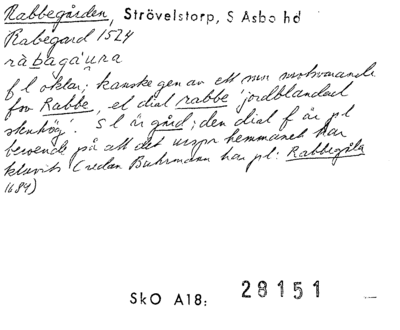 Rabbegården, Strövelstorp, S Asbo hd
Rabegard 1524
råbagáura
f l oklar; kanske gen av ett mn motsvarande
fsv Rabbe, el dial rabbe 'jordblandad
stenhög'. S l är gård; den dial f är pl
beroende på att det urspr hemmanet har
kluvits (redan Buhrmann har pl: Rabbegåla
1684)
SkO A18: 28151